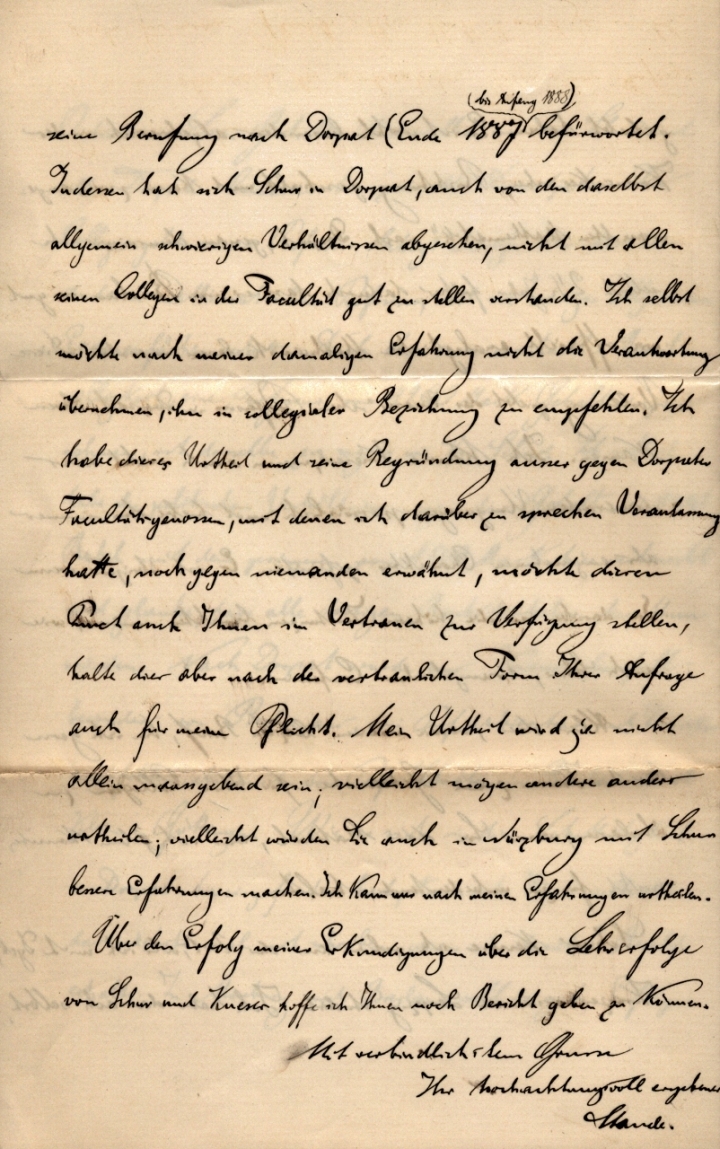 (bis Anfang 1888)
seine Berufung nach Dorpat (Ende 1887) befürwortet.
Indessen hat sich Schur in Dorpat, auch von den daselbst
allgemein schwierigen Verhältnissen abgesehen, nicht mit allen
seinen Collegen in der Facultät gut zu stellen verstanden. Ich selbst
möchte nach meiner damaligen Erfahrung nicht die Verantwortung
übernehmen, ihn in collegialer Beziehung zu empfehlen. Ich
habe dieses Urtheil und seine Begründung ausser gegen Dorpater
Facultätsgenossen, mit denen ich darüber zu sprechen Veranlassung
hatte, noch gegen niemanden erwähnt, möchte diesen
Punct auch Ihnen im Vertrauen zur Verfügung stellen,
halte dies aber nach der vertraulichen Form Ihrer Anfrage
auch für meine Pflicht. Mein Urtheil wird ja nicht
allein maassgebend sein; vielleicht mögen andere anders
urtheilen; vielleicht würden Sie auch in Würzburg mit Schur
bessere Erfahrungen machen. Ich kann nur nach meinen Erfahrungen urtheilen.
Über den Erfolg meiner Erkundigungen über die Lehrerfolge
von Schur und Kneser hoffe ich Ihnen noch Bericht geben zu können.
Mit verbindlichstem Grusse
Ihr hochachtungsvoll ergebener
Staude.